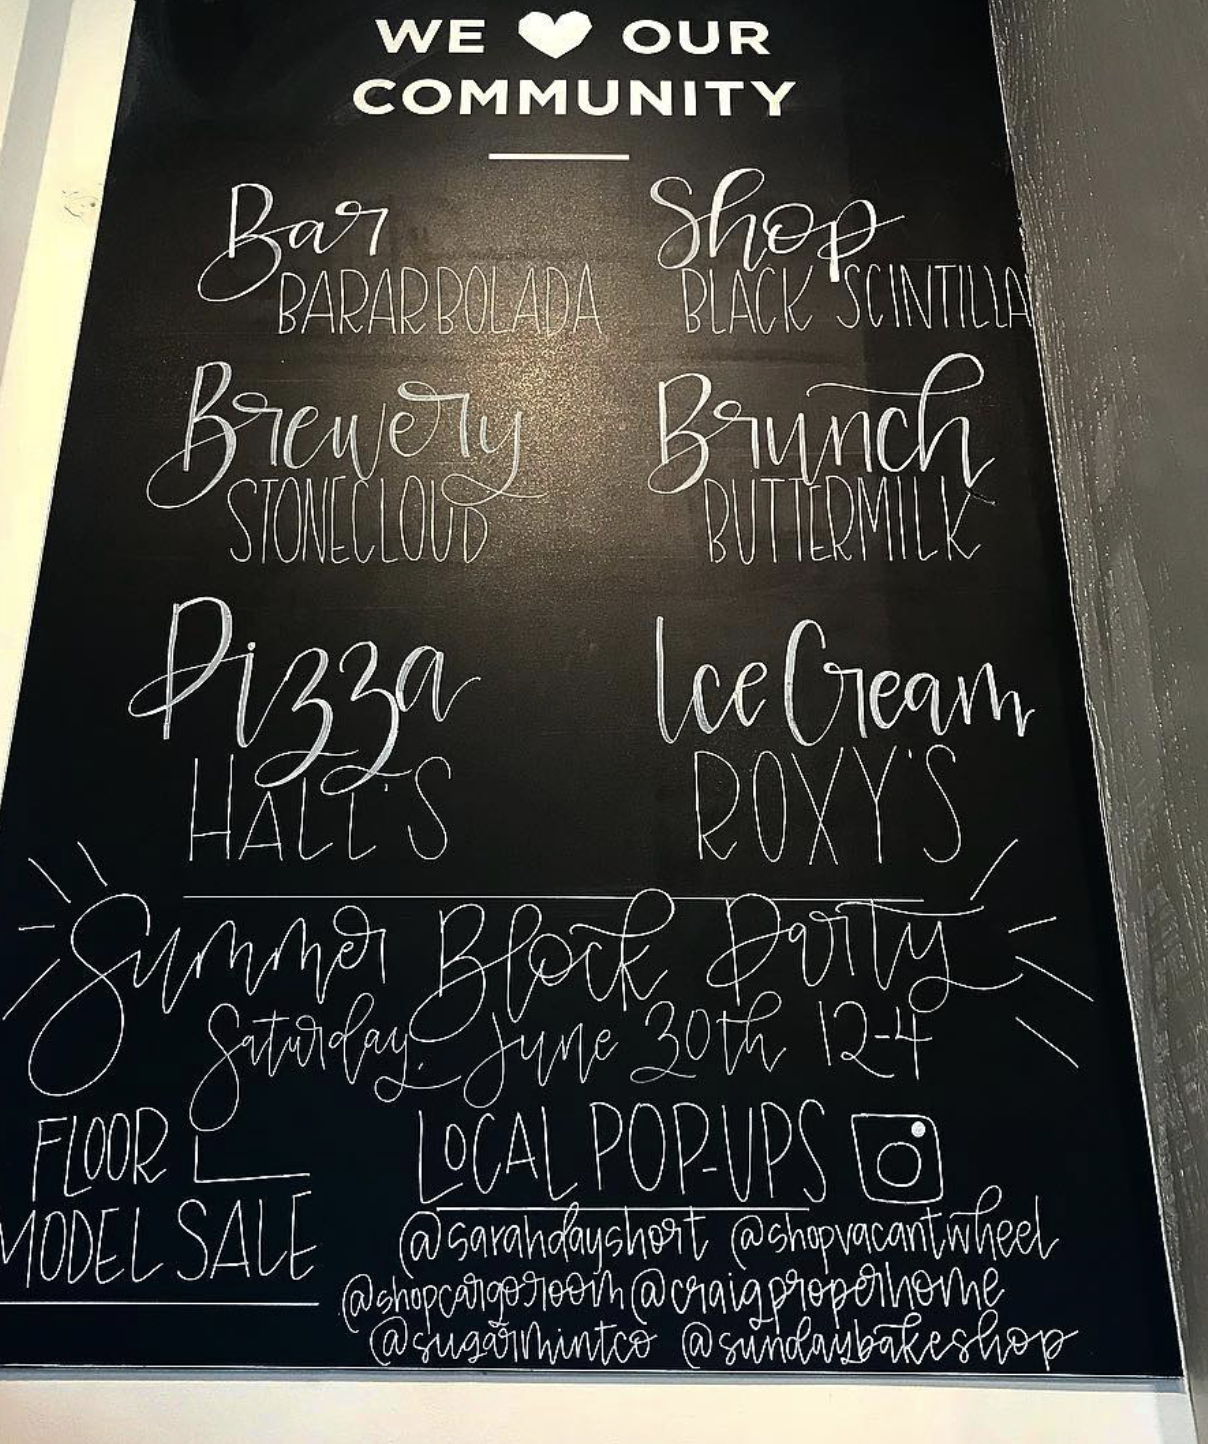 WE ♥ OUR
COMMUNITY
Bar
BARARBOLADA
Shop
BLACK SCINTILLA
Brewery
STONECLOUD
Brunch
BUTTERMILK
Pizza
HALL'S
Ice Cream
ROXY'S
Summer Block Party
Saturday, June 30th 12-4
FLOOR
MODEL SALE
LOCAL POP-UPS
@sarahdayshort @shopvacantwheel
@shopcargoroom @craigproperhome
@sugarmintco @sundaybakeshop